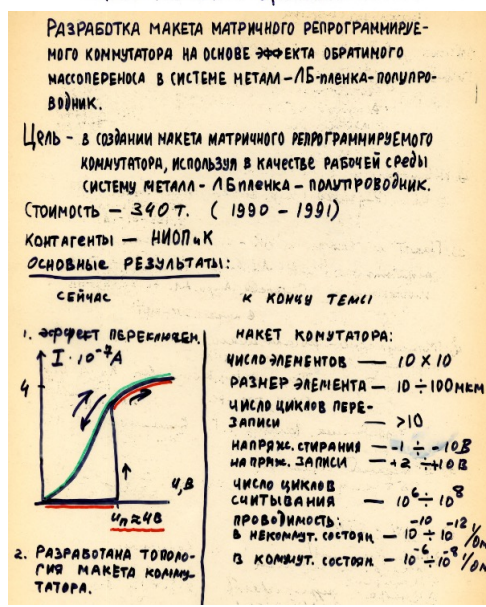 РАЗРАБОТКА МАКЕТА МАТРИЧНОГО РЕПРОГРАММИРУЕ-
МОГО КОММУТАТОРА НА ОСНОВЕ ЭФФЕКТА ОБРАТИМОГО
МАССОПЕРЕНОСА В СИСТЕМЕ МЕТАЛЛ-ЛБ-ПЛЕНКА-ПОЛУПРО-
ВОДНИК.
ЦЕЛЬ - В СОЗДАНИИ МАКЕТА МАТРИЧНОГО РЕПРОГРАММИРУЕМОГО
КОММУТАТОРА, ИСПОЛЬЗУЯ В КАЧЕСТВЕ РАБОЧЕЙ СРЕДЫ
СИСТЕМУ МЕТАЛЛ - ЛБ ПЛЕНКА - ПОЛУПРОВОДНИК.
СТОИМОСТЬ - 340 Т. ( 1990 - 1991)
КОНТАГЕНТЫ - НИОПиК
ОСНОВНЫЕ РЕЗУЛЬТАТЫ:
СЕЙЧАС
1. ЭФФЕКТ ПЕРЕКЛЮЧЕН.
I · 10⁻⁷ А
4
U, В
Uп ≈ 4В
2. РАЗРАБОТАНА ТОПОЛО-
ГИЯ МАКЕТА КОММУ-
ТАТОРА.
К КОНЦУ ТЕМЫ
МАКЕТ КОМУТАТОРА:
ЧИСЛО ЭЛЕМЕНТОВ — 10 X 10
РАЗМЕР ЭЛЕМЕНТА — 10 ÷ 100 МКМ
ЧИСЛО ЦИКЛОВ ПЕРЕ-
ЗАПИСИ — >10
НАПРЯЖ. СТИРАНИЯ — -1 ÷ -10 В
НАПРЯЖ. ЗАПИСИ — +2 ÷ +10 В
ЧИСЛО ЦИКЛОВ
СЧИТЫВАНИЯ — 10⁶ ÷ 10⁸
ПРОВОДИМОСТЬ:
В НЕКОММУТ. СОСТОЯН. — 10⁻¹⁰ ÷ 10⁻¹² 1/Ом
В КОММУТ. СОСТОЯН. — 10⁻⁶ ÷ 10⁻⁸ 1/Ом